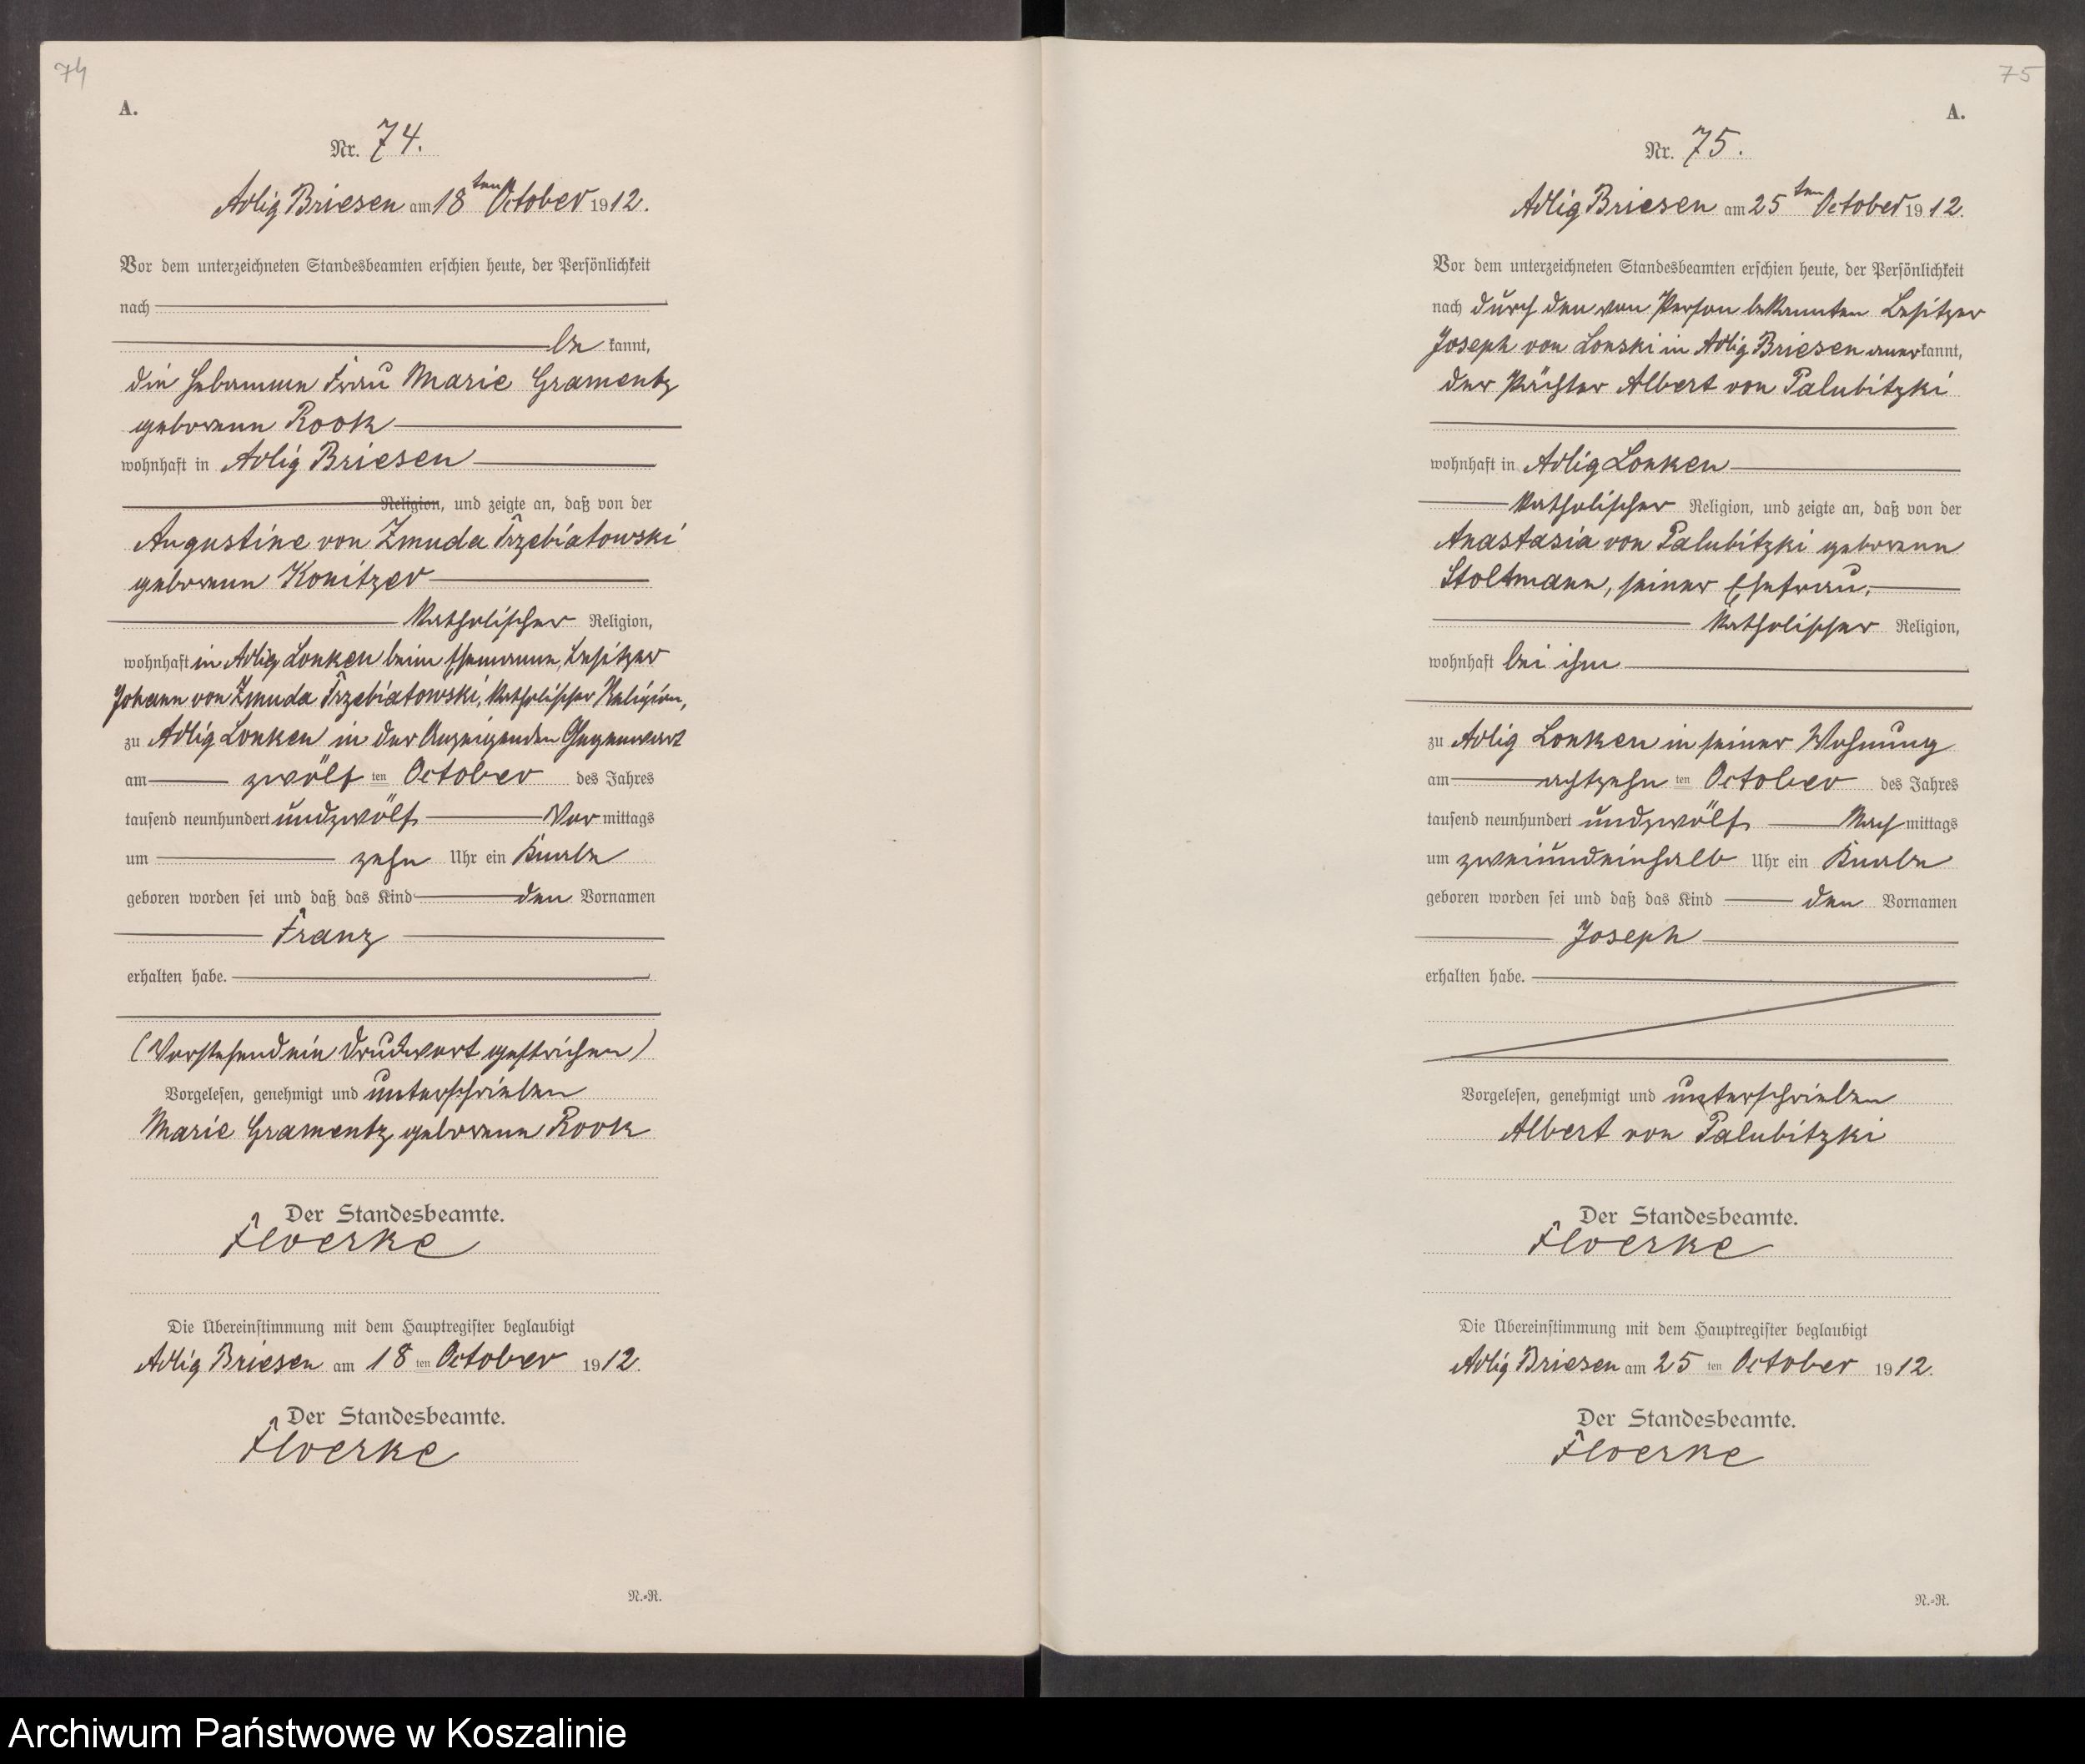 74
A.
Nr. 74.
Adlig Briesen am 18ten October 1912.
Vor dem unterzeichneten Standesbeamten erschien heute, der Persönlichkeit
nach
be kannt,
die Hebamme Frau Marie Gramentz
geborene Rook
wohnhaft in Adlig Briesen
Religion, und zeigte an, daß von der
Augustine von Zmuda Trzebiatowski
geborene Konitzer
katholischer Religion,
wohnhaft in Adlig Lonken beim Ehemanne, Besitzer
Johann von Zmuda Trzebiatowski, katholischer Religion,
zu Adlig Lonken in der Anzeigenden Gegenwart
am zwölf ten October des Jahres
tausend neunhundert undzwölf Vor mittags
um zehn Uhr ein Knabe
geboren worden sei und daß das Kind den Vornamen
Franz
erhalten habe.
(Vorstehend ein Druckwort gestrichen)
Vorgelesen, genehmigt und unterschrieben
Marie Gramentz geborene Rook
Der Standesbeamte.
Floerke
Die Übereinstimmung mit dem Hauptregister beglaubigt
Adlig Briesen am 18 ten October 1912.
Der Standesbeamte.
Floerke
N.-R.
75
A.
Nr. 75.
Adlig Briesen am 25ten October 1912.
Vor dem unterzeichneten Standesbeamten erschien heute, der Persönlichkeit
nach durch den von Person bekannten Besitzer
Joseph von Lonski in Adlig Briesen aner kannt,
der Pächter Albert von Palubitzki
wohnhaft in Adlig Lonken
katholischer Religion, und zeigte an, daß von der
Anastasia von Palubitzki geborene
Stoltmann, seiner Ehefrau,
katholischer Religion,
wohnhaft bei ihm
zu Adlig Lonken in seiner Wohnung
am achtzehn ten October des Jahres
tausend neunhundert undzwölf Nach mittags
um zweiundeinhalb Uhr ein Knabe
geboren worden sei und daß das Kind den Vornamen
Joseph
erhalten habe.
Vorgelesen, genehmigt und unterschrieben
Albert von Palubitzki
Der Standesbeamte.
Floerke
Die Übereinstimmung mit dem Hauptregister beglaubigt
Adlig Briesen am 25 ten October 1912.
Der Standesbeamte.
Floerke
N.-R.
Archiwum Państwowe w Koszalinie